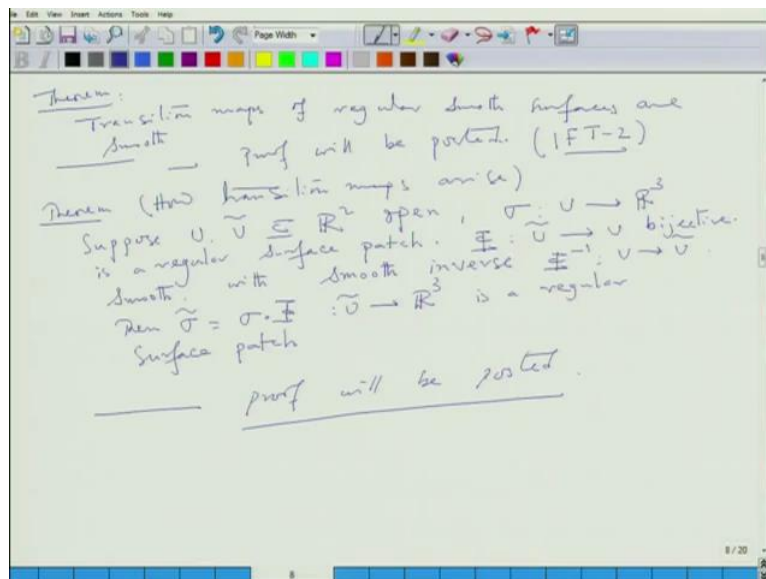 File Edit View Insert Actions Tools Help
Page Width
B I
Theorem:
Transition maps of regular smooth surfaces are
smooth
— proof will be posted. (IFT-2)
Theorem (How transition maps arise)
Suppose U, Ũ ⊆ ℝ² open, σ: U → ℝ³
is a regular surface patch. Φ: Ũ → U bijective.
smooth, with smooth inverse Φ⁻¹: U → Ũ.
Then σ̃ = σ∘Φ : Ũ → ℝ³ is a regular
surface patch
— proof will be posted.
8 / 20
8